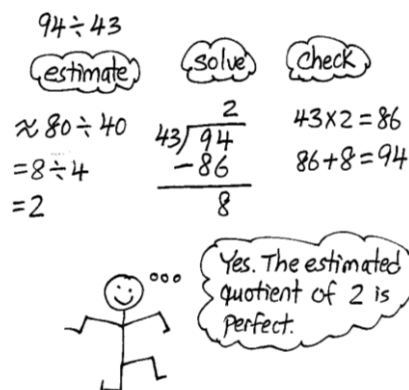 94÷43
estimate
≈80÷40
=8÷4
=2
solve
2
43)94
-86
8
check
43×2=86
86+8=94
Yes. The estimated
quotient of 2 is
perfect.